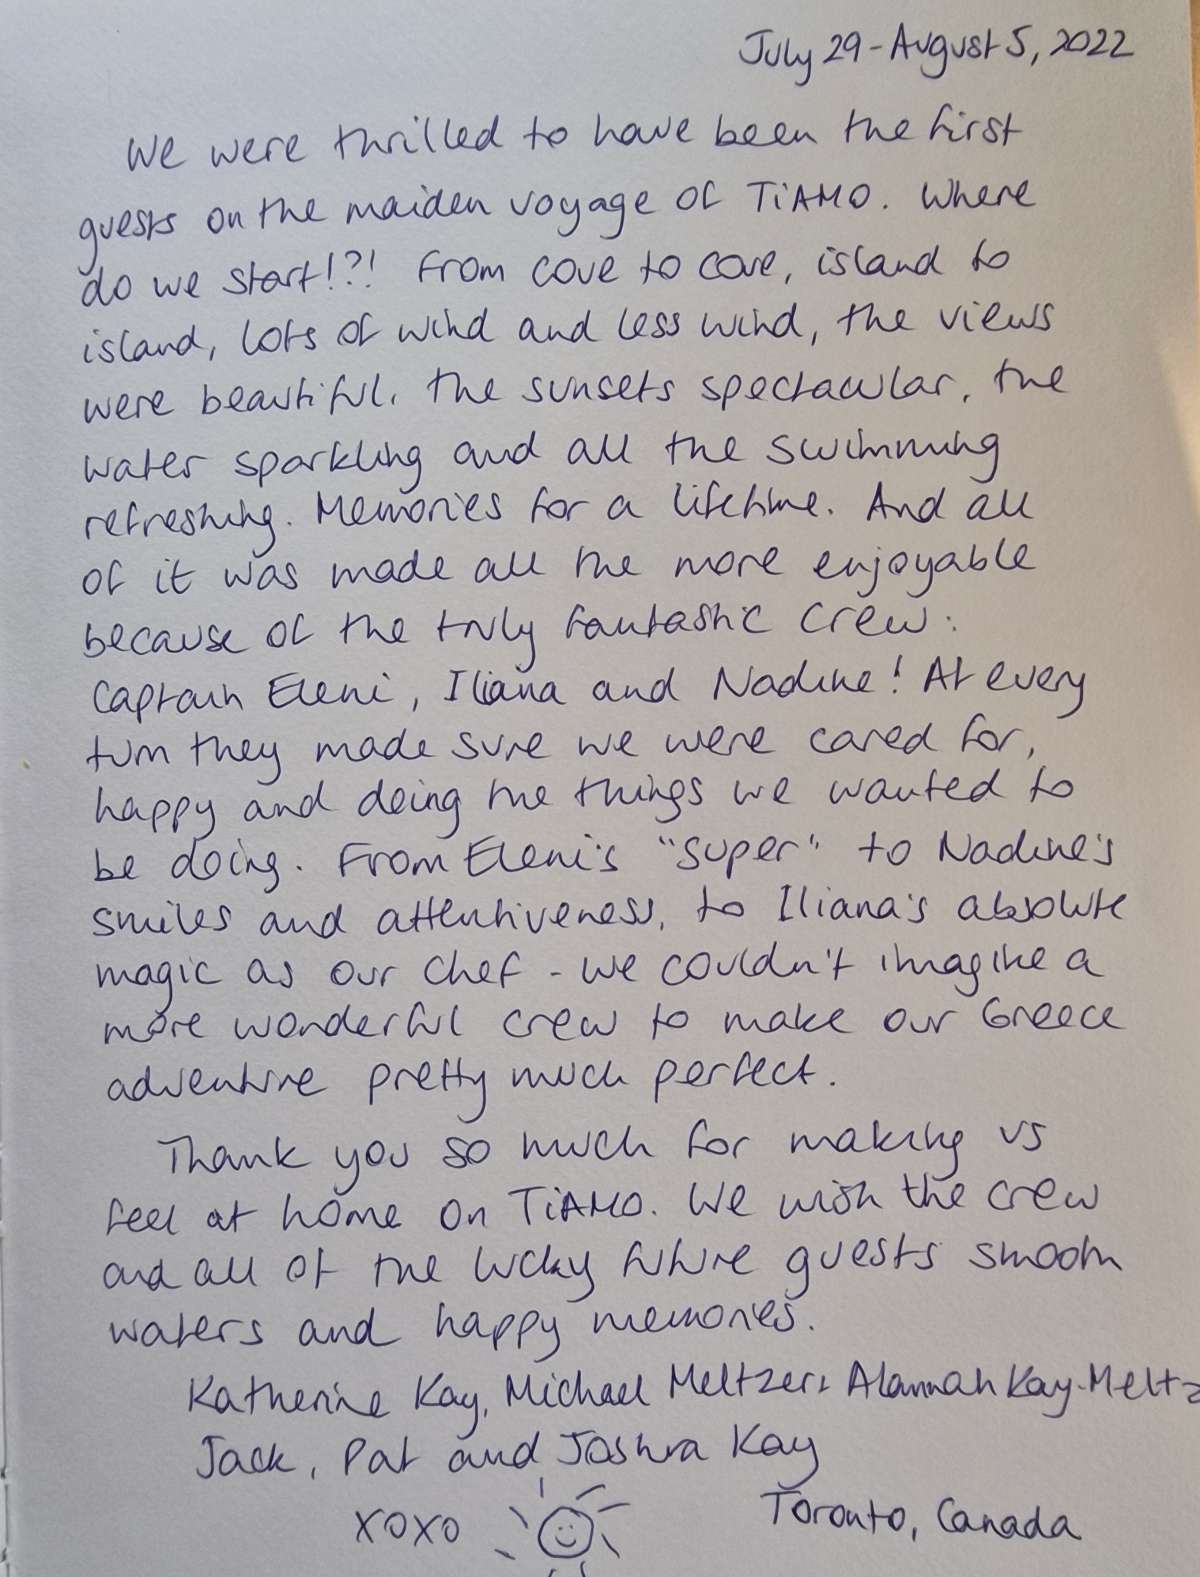 July 29 - August 5, 2022
We were thrilled to have been the first
guests on the maiden voyage of TiAMO. Where
do we start!?! From cove to cove, island to
island, lots of wind and less wind, the views
were beautiful. The sunsets spectacular, the
water sparkling and all the swimming
refreshing. Memories for a lifetime. And all
of it was made all the more enjoyable
because of the truly fantastic crew:
Captain Eleni, Iliana and Nadine! At every
turn they made sure we were cared for,
happy and doing the things we wanted to
be doing. From Eleni's "super" to Nadine's
smiles and attentiveness, to Iliana's absolute
magic as our chef - we couldn't imagine a
more wonderful crew to make our Greece
adventure pretty much perfect.
Thank you so much for making us
feel at home on TiAMO. We wish the crew
and all of the lucky future guests smooth
waters and happy memories.
Katherine Kay, Michael Meltzer, Alannah Kay-Meltz
Jack, Pat and Joshua Kay
xoxo
Toronto, Canada